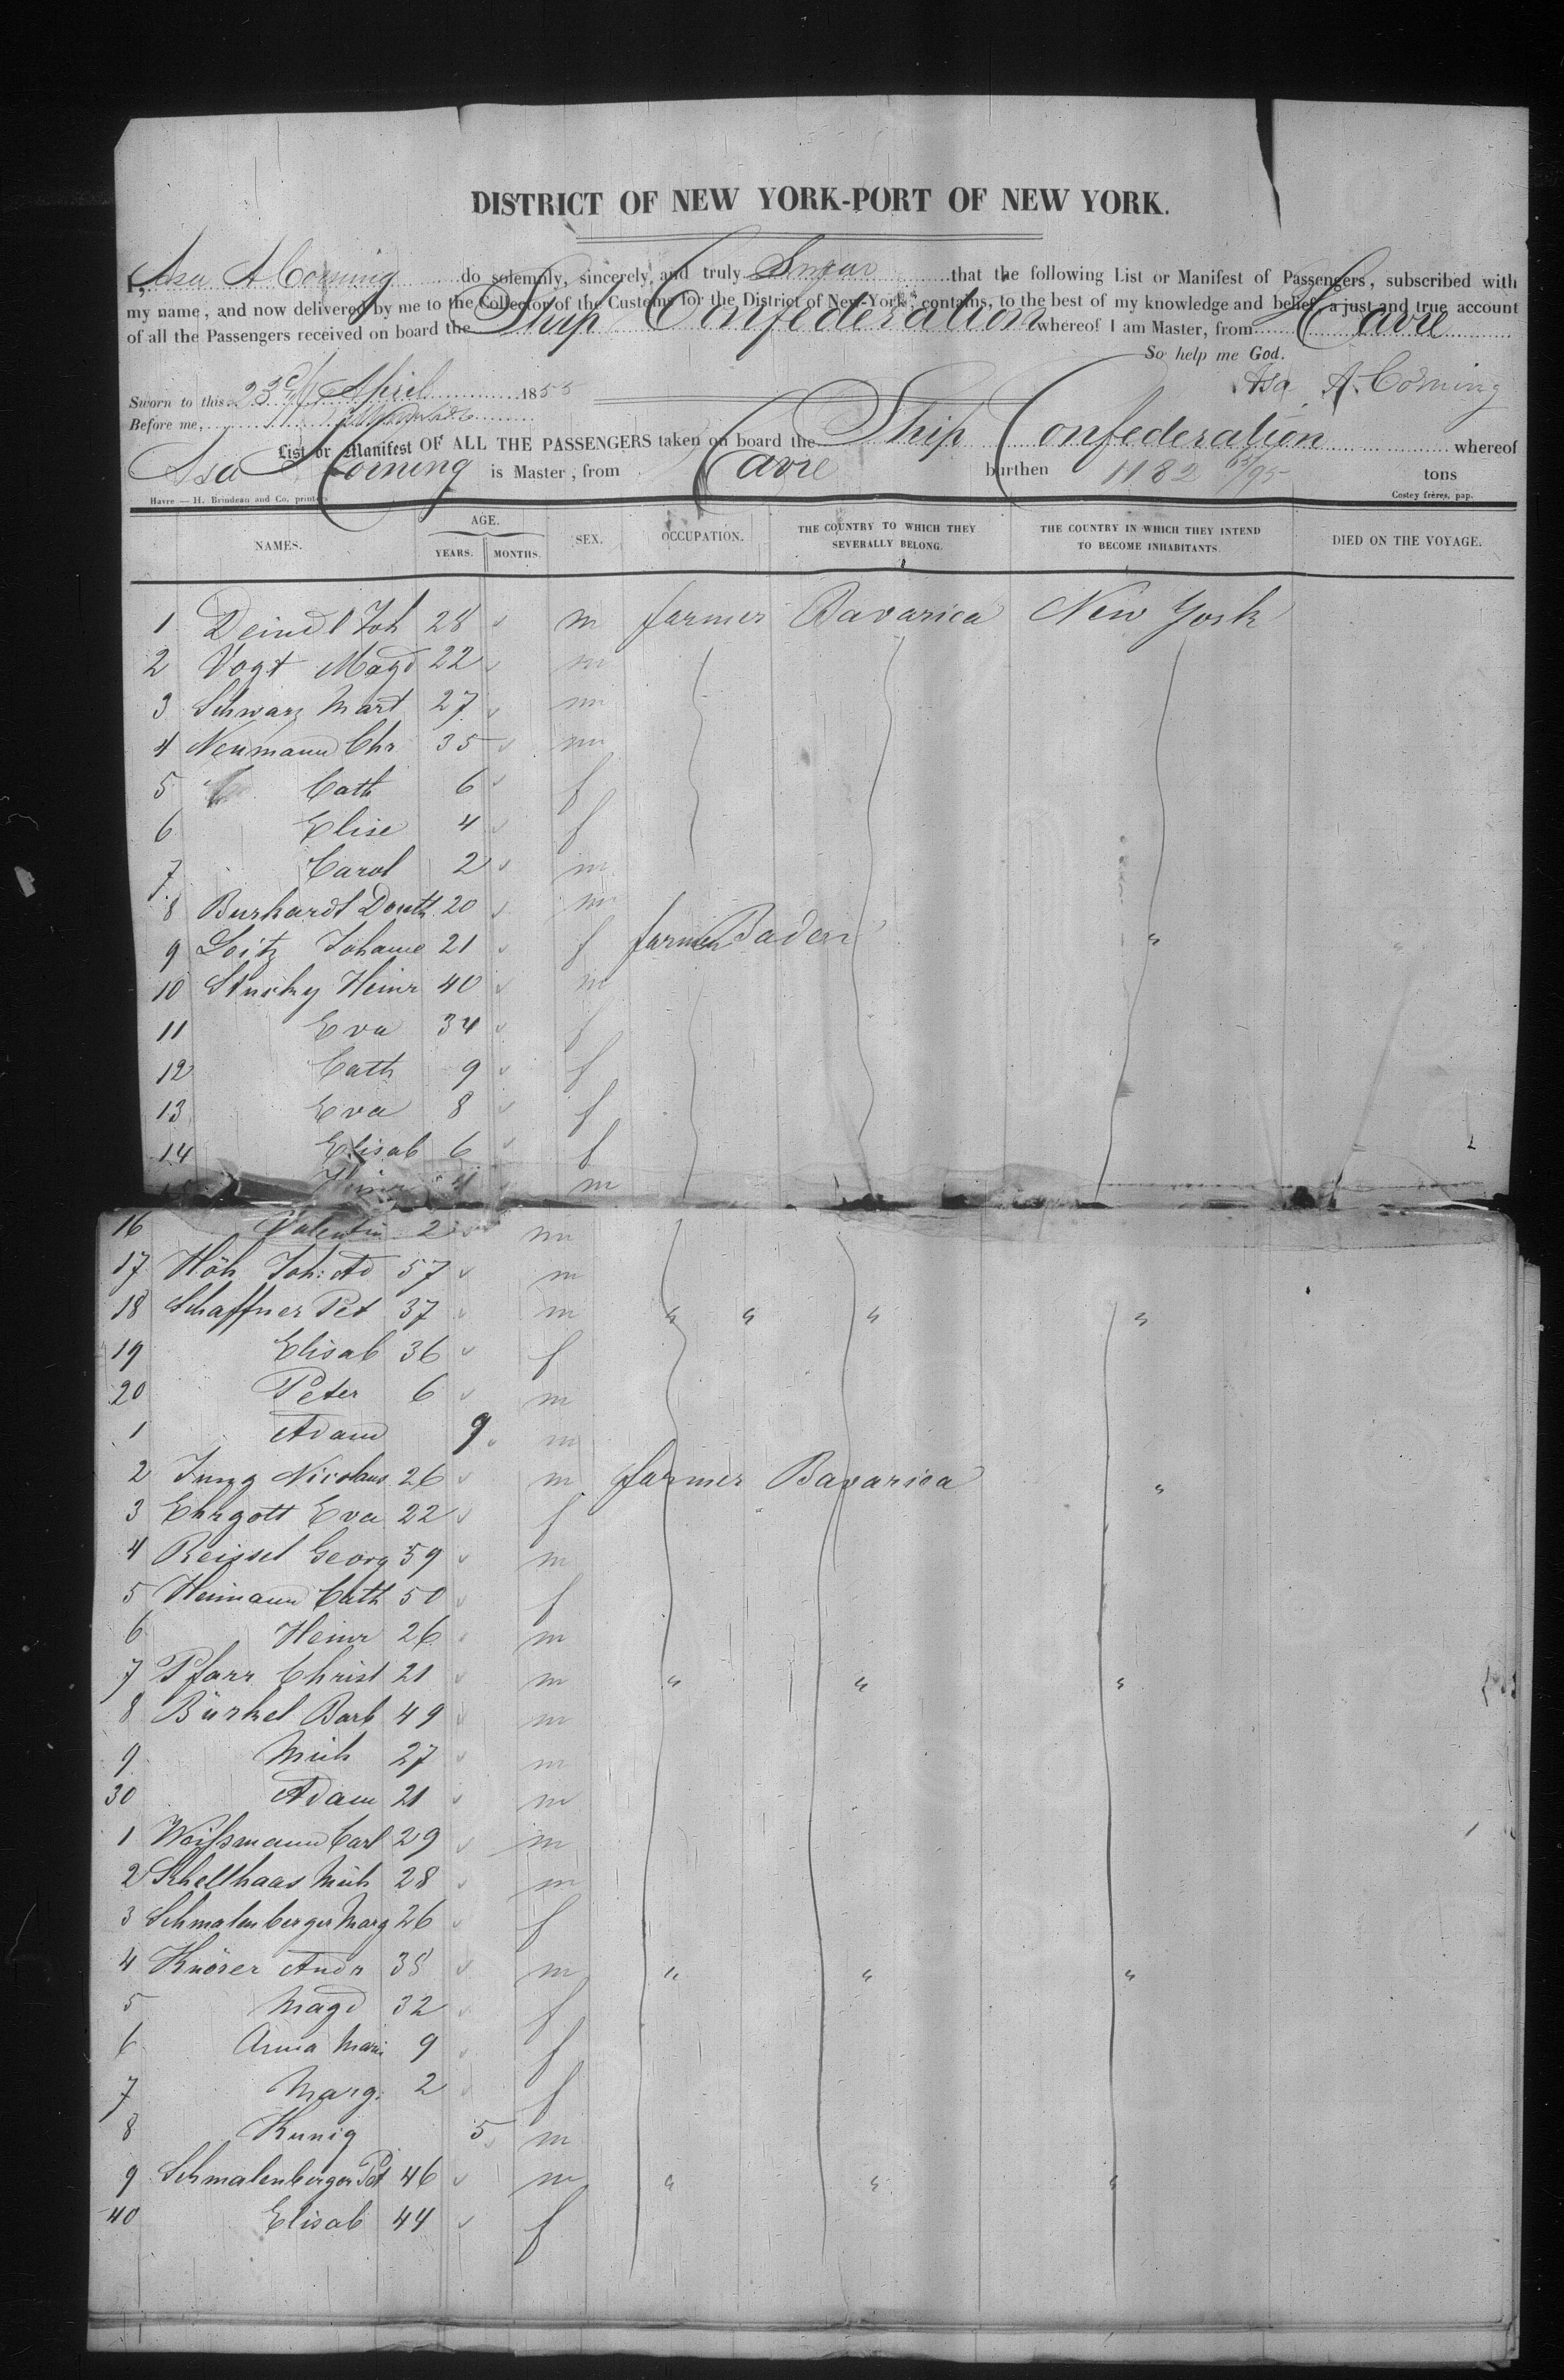 DISTRICT OF NEW YORK-PORT OF NEW YORK.
I, Asa A Corning do solemnly, sincerely and truly Swear that the following List or Manifest of Passengers, subscribed with
my name, and now delivered by me to the Collector of the Customs for the District of New-York, contains, to the best of my knowledge and belief, a just and true account
of all the Passengers received on board the Ship Confederation whereof I am Master, from Havre
So help me God.
Sworn to this 23d April 1855 Asa A. Corning
Before me,
List or Manifest OF ALL THE PASSENGERS taken on board the Ship Confederation whereof
Asa A Corning is Master, from Havre burthen 1182 65/95 tons
Havre — H. Brindeau and Co, printers Costey frères, pap.
NAMES. AGE. YEARS. MONTHS. SEX. OCCUPATION. THE COUNTRY TO WHICH THEY SEVERALLY BELONG. THE COUNTRY IN WHICH THEY INTEND TO BECOME INHABITANTS. DIED ON THE VOYAGE.
1 Deindl Joh 28 m farmer Bavarica New York
2 Vogt Magd 22 m
3 Schwarz Mart 27 m
4 Neumann Chr 35 m
5 Cath 6 f
6 Elise 4 f
7 Carol 2 m
8 Burkardt Doroth 20 m
9 Loitz Johanne 21 f farmer Baden "
10 Stucky Heinr 40 m
11 Eva 34 f
12 Cath 9 f
13 Eva 8 f
14 Elisab 6 f
Heinr 4 m
16 Valentin 2 m
17 Höh Joh: Ad 57 m
18 Schaffner Pet 37 m " " " "
19 Elisab 36 f
20 Peter 6 m
1 Adam 9 m
2 Jung Nicolaus 26 m farmer Bavarica "
3 Ehrgott Eva 22 f
4 Reissel Georg 59 m
5 Heimann Cath 50 f
6 Heinr 26 m
7 Pfarr Christ 21 m " " "
8 Bürkel Barb 49 m
9 Mich 27 m
30 Adam 21 m
1 Weißmann Carl 29 m
2 Schellhaas Mich 28 m
3 Schmalenberger Marg 26 f
4 Knörer Andr 38 m " " "
5 Magd 32 f
6 Anna Mari 9 f
7 Marg: 2 f
8 Kunig 5 m
9 Schmalenberger Pet 46 m " " "
40 Elisab 44 f